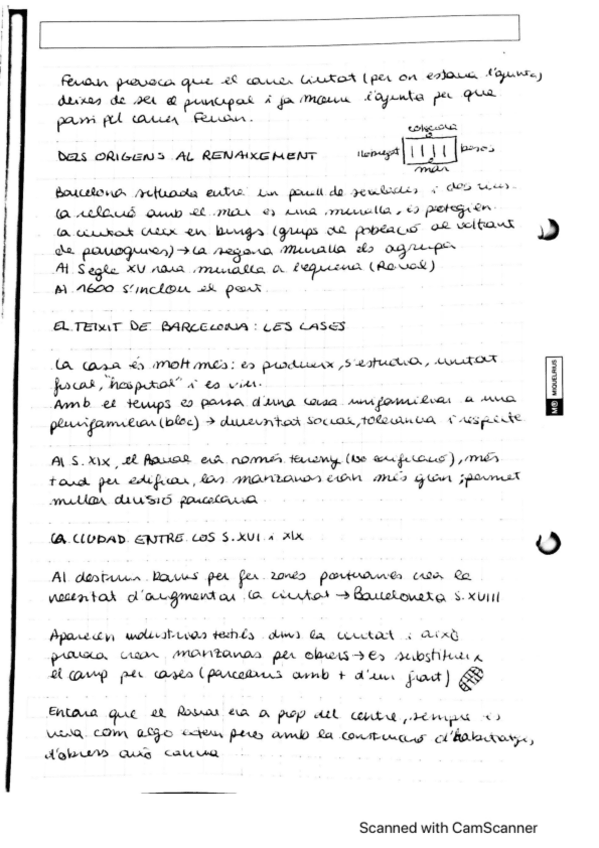 Ferran provoca que el carrer Ciutat (per on estava l'ajunta)
deixes de ser el principal i ja mou l'ajunta per que
passi pel carrer Ferran.
collserola
DELS ORIGENS AL RENAIXEMENT
llobregat
besos
mar
Barcelona situada entre un parell de serralades i dos rius.
La relació amb el mar es una muralla, es protegien
La ciutat creix en burgs (grups de població al voltant
de parroquies) → la segona muralla els agrupa
Al Segle XV nova muralla a l'equerra (Raval)
Al 1600 s'inclou el port.
EL TEIXIT DE BARCELONA: LES CASES
La casa és molt més: es produeix, s'estudia, unitat
fiscal, "hospital" i es viu.
Amb el temps es passa d'una casa unifamiliar a una
plurifamiliar (bloc) → diversitat social, tolerancia i respecte
Al S. XIX, el Raval era només terreny (no edificació), més
tard per edificar, las manzanas eran més gran; permet
millor divisió parcelaria
LA CIUDAD ENTRE LOS S. XVI i XIX
Al destruir barris per fer zones portuaries crea la
necesitat d'augmentar la ciutat → Barceloneta S. XVIII
MIQUELRIUS
Apareixen industrias textils dins la ciutat i això
provoca crear manzanas per obrers → es substitueix
el camp per cases (parcelaris amb + d'un front)
Encara que el Raval era a prop del centre, sempre es
veia com algo extern pero amb la construcció d'habitatges
d'obrers això canvia
Scanned with CamScanner